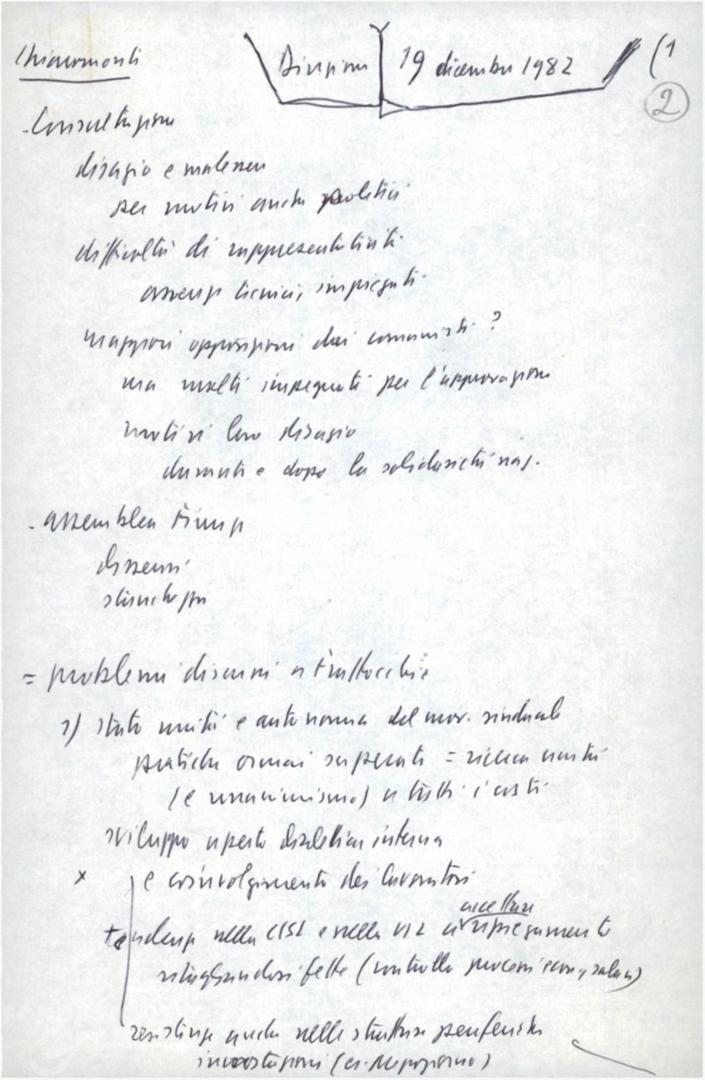 Chiaromonte
Direzione 19 dicembre 1982 (1
2
- Consultazione
disagio e malessere
per motivi anche politici
difficoltà di rappresentatività
assenza tecnici, impiegati
maggiori opposizioni dai comunisti?
ma molti impegnati per l'approvazione
motivi loro disagio
durante e dopo la solidarietà naz.
- assemblea
dissensi
= problemi discussi a Frattocchie
1) stato unità e autonomia del mov. sindacale
pratiche ormai superate = ricerca unità
(e unanimismo) a tutti i costi
sviluppo aperto dialettica interna
x e coinvolgimento dei lavoratori
accettare
tendenza nella CISL e nella UIL a ripiegamento
ritagliandosi fette (controllo processi
resistenze anche nelle strutture periferiche